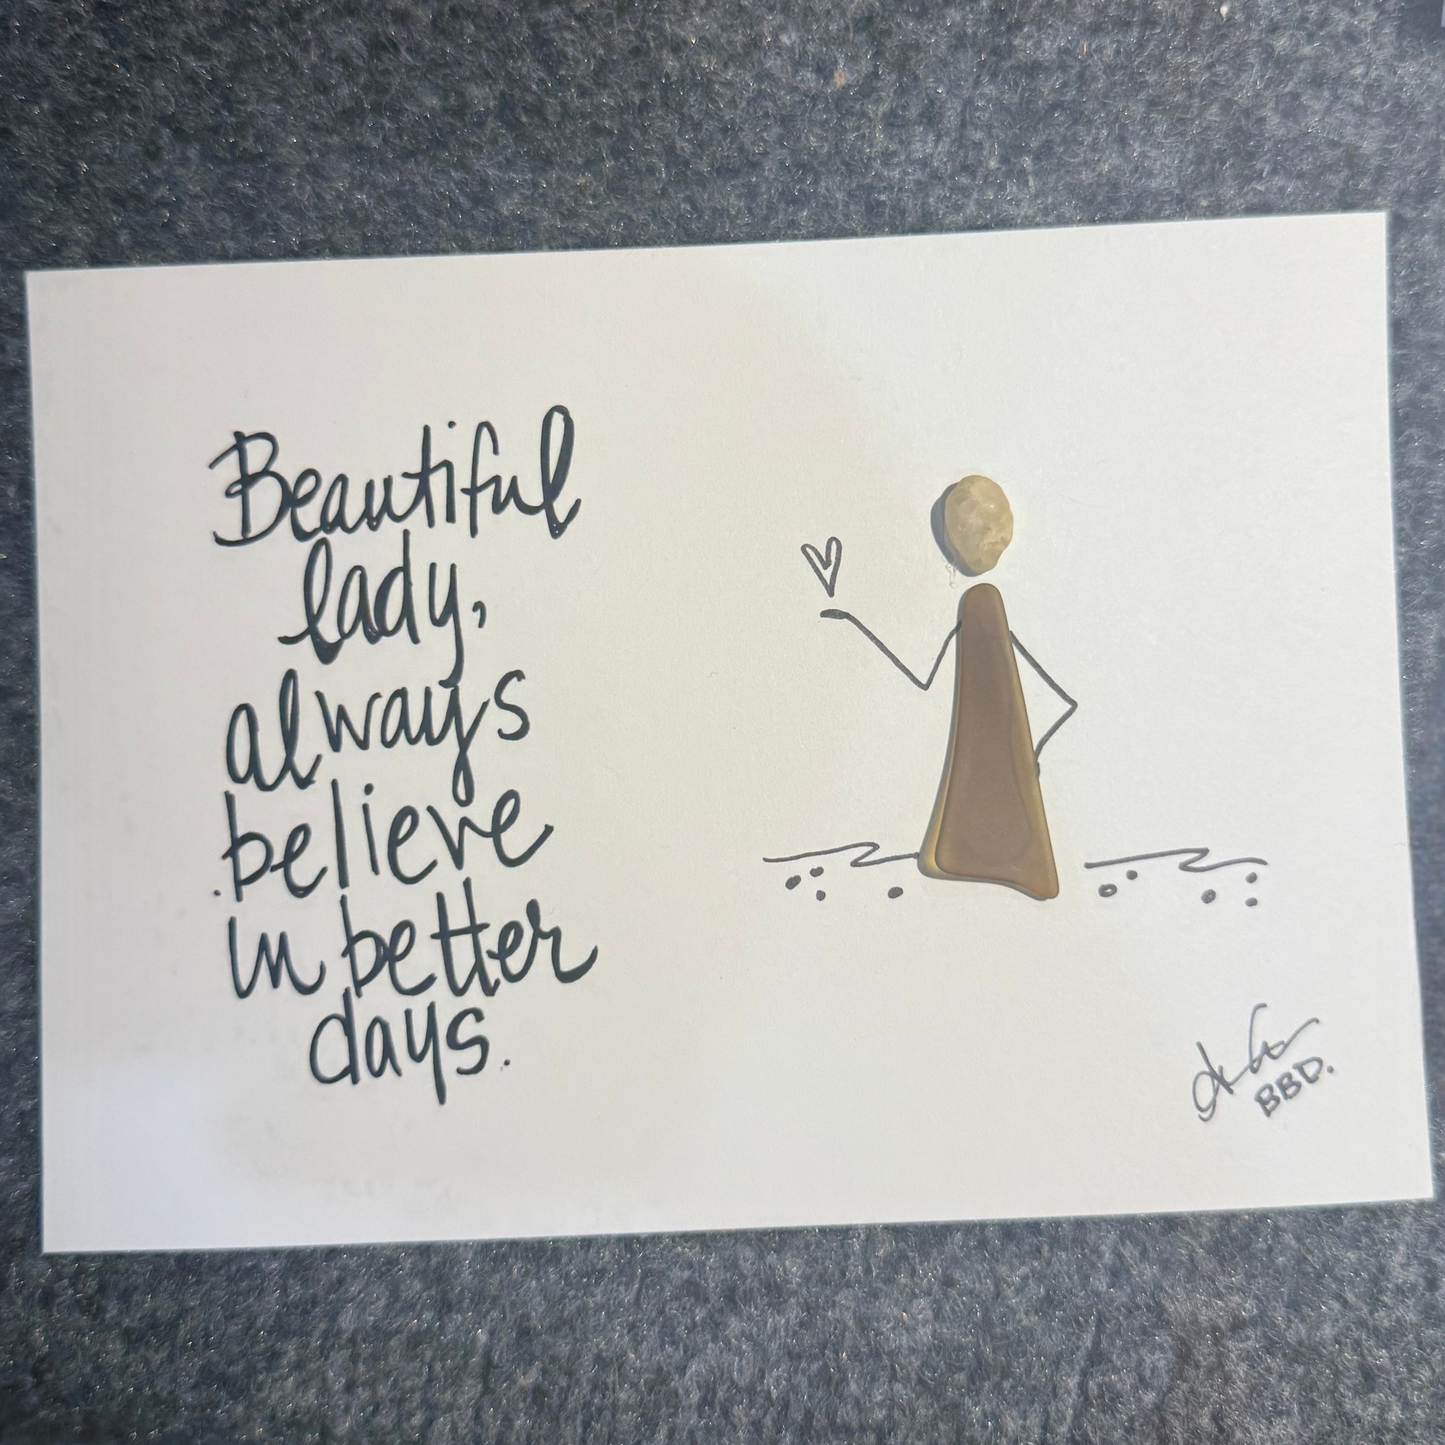 Beautiful
lady,
always
believe
in better
days.
BBD.